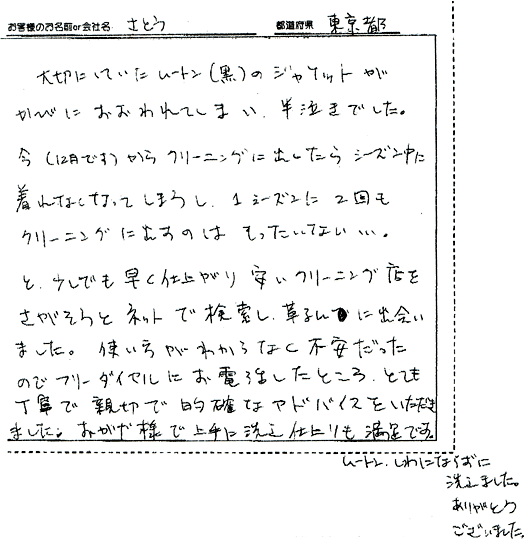 お客様のお名前or会社名 さとう 都道府県 東京都
大切にしていたムートン(黒)のジャケットが
かびにおおわれてしまい、半泣きでした。
今(12月です)からクリーニングに出したらシーズン中に
着れなくなってしまうし、1シーズンに2回も
クリーニングに出すのはもったいない…。
と、少しでも早く仕上がり安いクリーニング店を
さがそうとネットで検索し、革るんに出会い
ました。使い方がわからなく不安だった
のでフリーダイヤルにお電話したところ、とても
丁寧で親切で的確なアドバイスをいただき
ました。おかげ様で上手に洗え仕上りも満足です。
ムートン、しわにならずに
洗えました。
ありがとう
ございました。